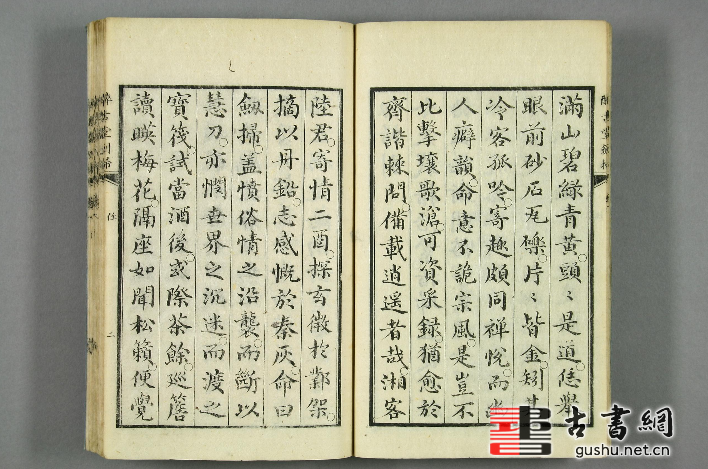 滿山碧綠青黃頭〻是道信舉
眼前砂石瓦礫片〻皆金矧其
冷客孤吟寄趣頗同禪悅而
人癖韻命意不詭宗風是豈不
比擊壤歌滄可資采録猶愈於
齊諧棘問備載逍遥者哉湘客
陸君寄情二酉探玄微於鄴架
摘以丹鉛志感慨於秦灰命曰
劔掃蓋憤俗情之沿襲而斷以
慧刀亦憫世界之沉迷而渡之
寶筏試當酒後或際茶餘巡簷
讀暎梅花隔座如聞松籟便覺
古書網
gushu.net.cn